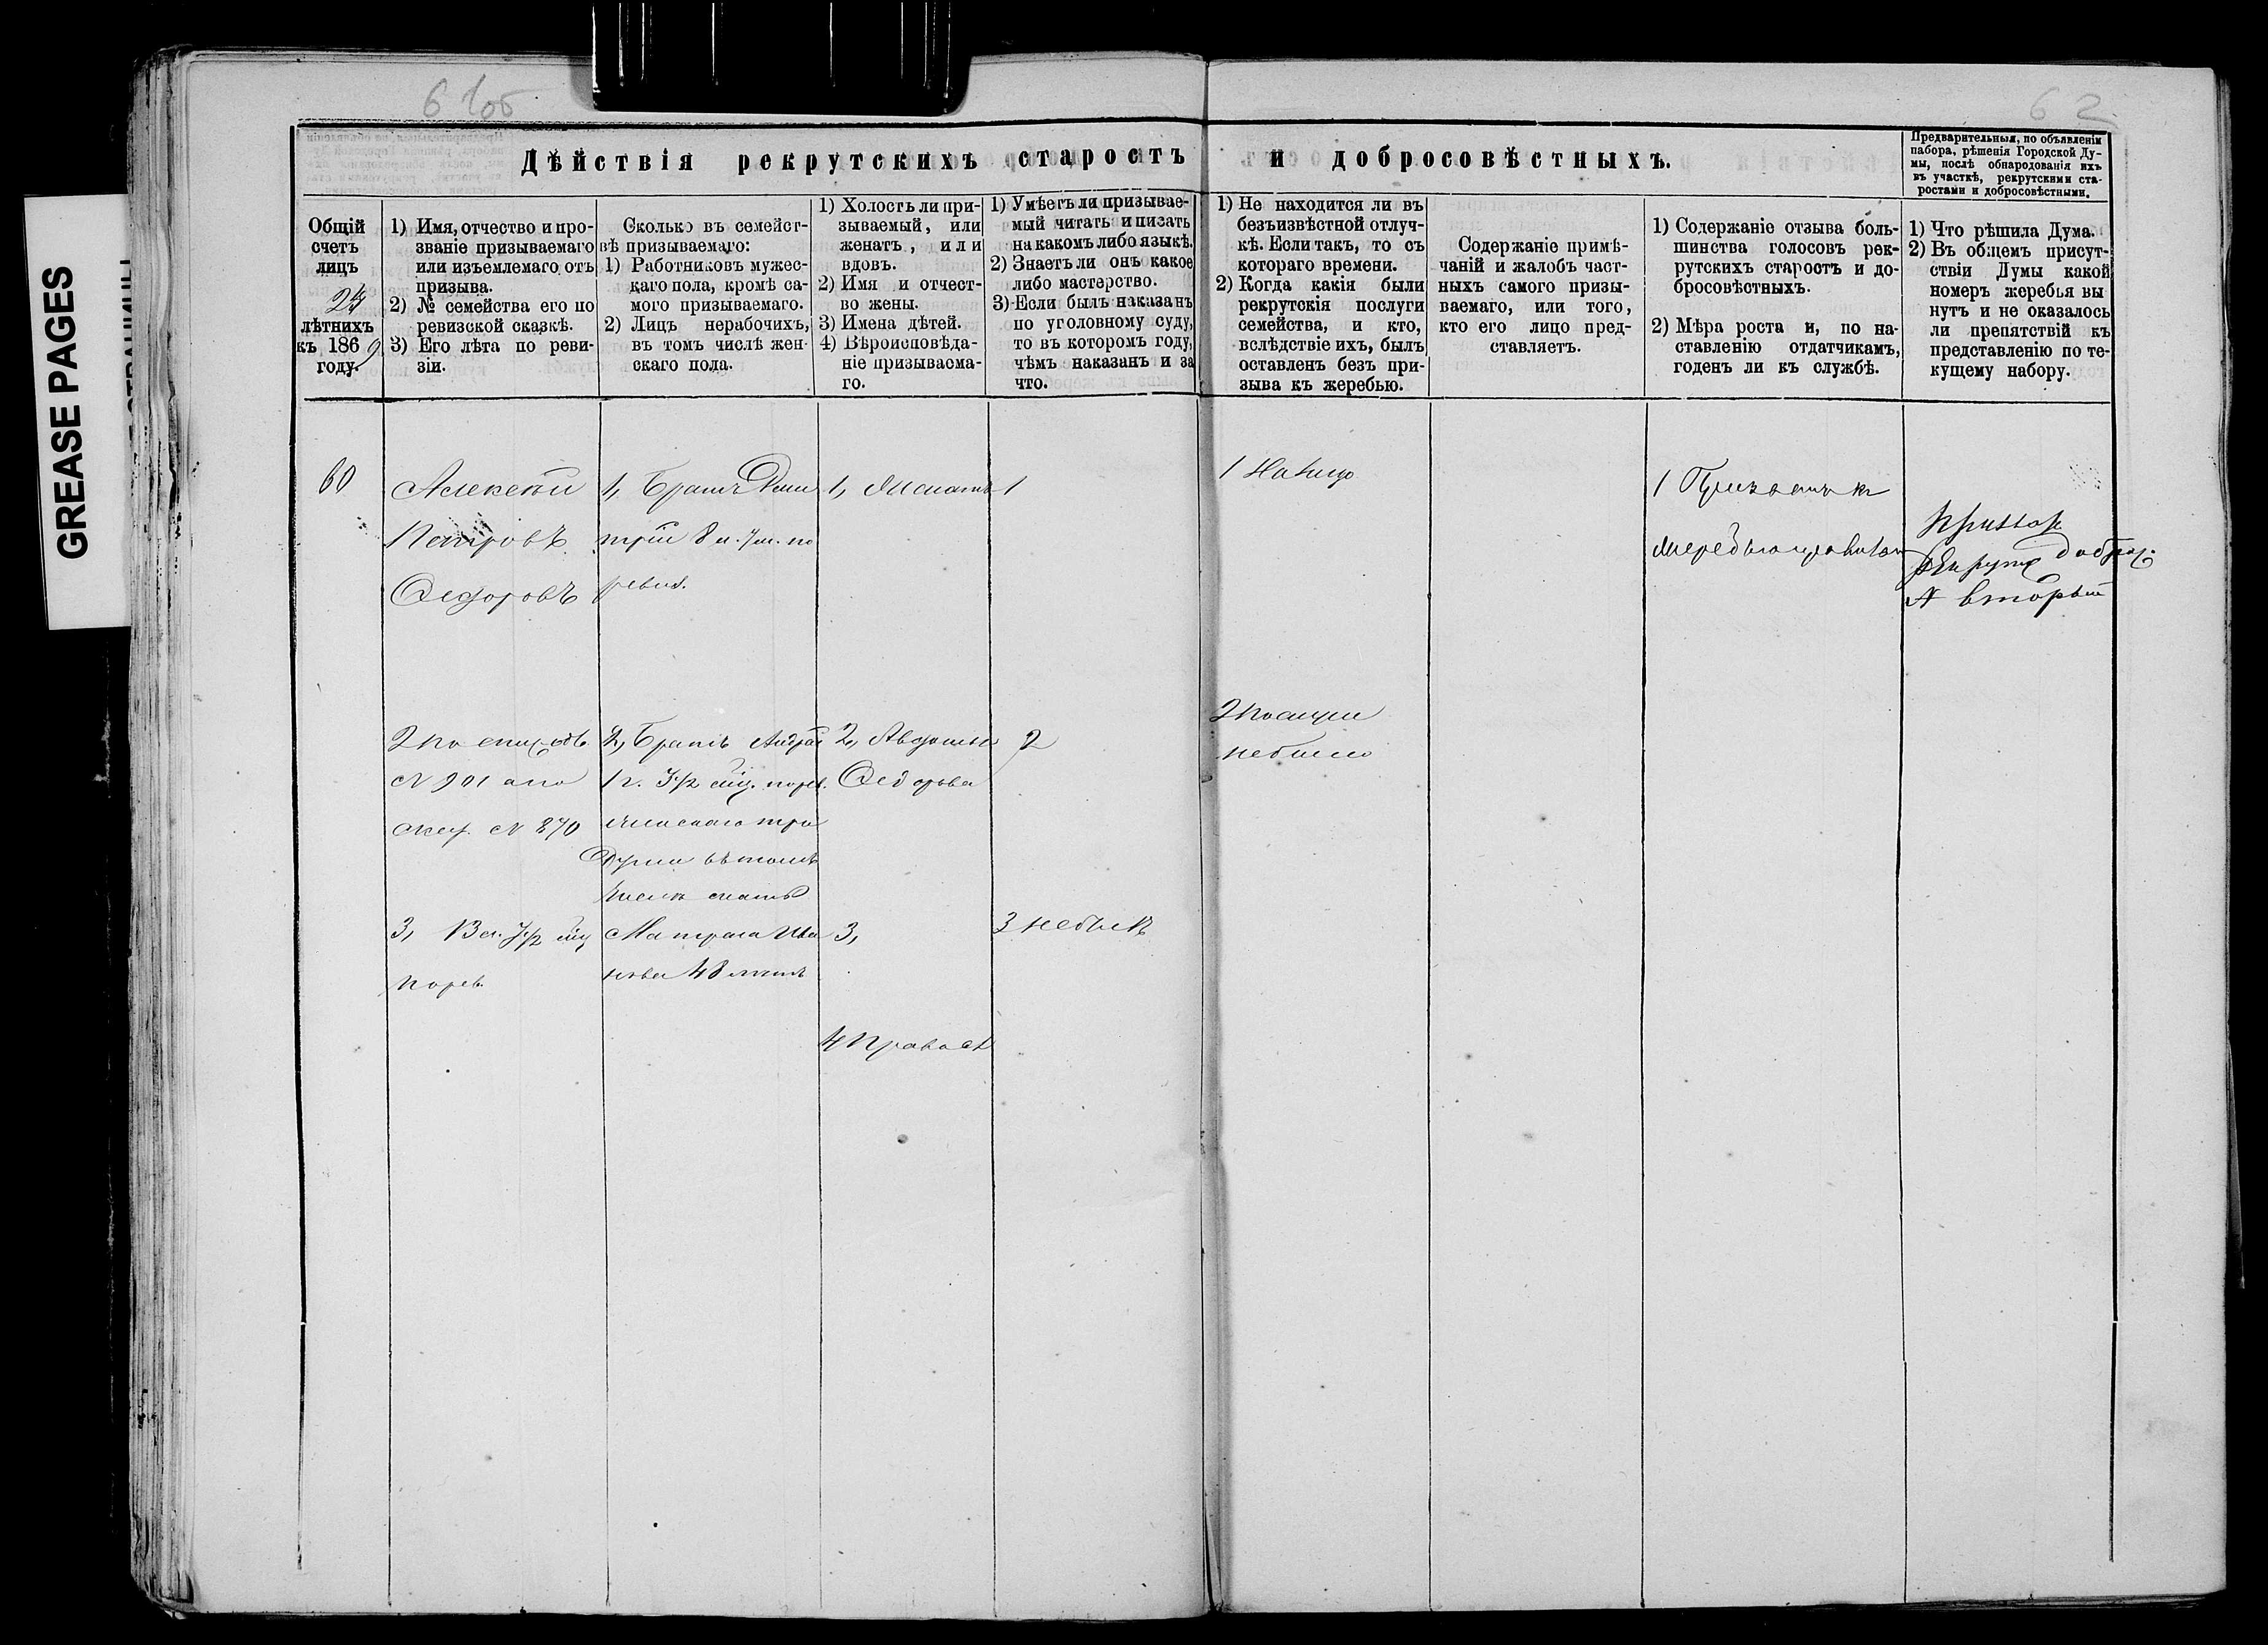 GREASE PAGES
61об
62
Дѣйствія рекрутскихъ старостъ и добросовѣстныхъ.
Предварительныя, по объявленіи
набора, рѣшенія Городской Ду-
мы, послѣ обнародованія ихъ
въ участкѣ, рекрутскими ста-
ростами и добросовѣстными.
Общій
счетъ
лицъ
лѣтнихъ
къ 1869
году.
1) Имя, отчество и про-
званіе призываемаго
или изъемлемаго отъ
призыва.
2) № семейства его по
ревизской сказкѣ.
3) Его лѣта по реви-
зіи.
Сколько въ семейст-
вѣ призываемаго:
1) Работниковъ мужес-
каго пола, кромѣ са-
мого призываемаго.
2) Лицъ нерабочихъ,
въ томъ числѣ жен-
скаго пола.
1) Холостъ ли при-
зываемый, или
женатъ, или
вдовъ.
2) Имя и отчест-
во жены.
3) Имена дѣтей.
4) Вѣроисповѣда-
ніе призываема-
го.
1) Умѣетъ ли призывае-
мый читать и писать
на какомъ либо языкѣ.
2) Знаетъ ли онъ какое
либо мастерство.
3) Если былъ наказанъ
по уголовному суду,
то въ которомъ году,
чѣмъ наказанъ и за
что.
1) Не находится ли въ
безъизвѣстной отлуч-
кѣ. Если такъ, то съ
котораго времени.
2) Когда какія были
рекрутскія послуги
семейства, и кто,
вслѣдствіе ихъ, былъ
оставленъ безъ при-
зыва къ жеребью.
Содержаніе примѣ-
чаній и жалобъ част-
ныхъ самого призы-
ваемаго, или того,
кто его лицо пред-
ставляетъ.
1) Содержаніе отзыва боль-
шинства голосовъ рек-
рутскихъ старостъ и до-
бросовѣстныхъ.
2) Мѣра роста и, по на-
ставленію отдатчикамъ,
годенъ ли къ службѣ.
1) Что рѣшила Дума.
2) Въ общемъ присут-
ствіи Думы какой
номеръ жеребья вы
нутъ и не оказалось
ли препятствій къ
представленію по те-
кущему набору.
60
Алексѣй
Петровъ
Федоровъ
2 по
№ 901 а по
№ 270
3,
по рев.
1, Братъ Дми
трій 8 л. 7 м. по
ревиз.
2, Братъ Андрей
1 г.
женскаго три
души въ томъ
числѣ мать
Матрена Ива
нова 48 лѣтъ
1, Женатъ
2, Авдотья
Федорова
3,
4 Правосл
1
2
3 небылъ
1 На лицо
2 послуги
небыло
1 Призвать къ
жеребью
второй